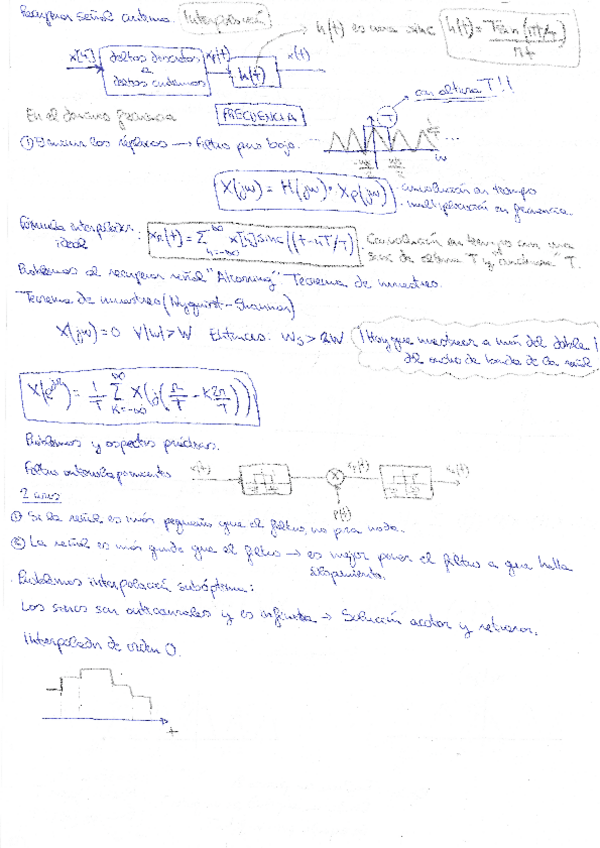 Recuperar señal continua (Interpolación) → h(t) es una sinc h(t) = T sin(πt/T) / πt
x[n] deltas discretos a deltas continuas xp(t) h(t) x(t)
En el dominio frecuencia FRECUENCIA T con altura T!!
① Eliminar las réplicas → Filtro paso bajo. -ωs/2 ωs/2 1/T ω
X(jω) = H(jω) · Xp(jω) · convolución en tiempo
· multiplicación en frecuencia.
Fórmula interpolador ideal xr(t) = Σ n=-∞ ∞ x[n] sinc((t-nT/T) . Convolución en tiempo con una
sinc de altura "T" y "anchura" T.
Problemas al recuperar señal "Aliasing". Teorema de muestreo.
Teorema de muestreo (Nyquist-Shannon)
X(jω) = 0 ∀|ω| > W Entonces: ωs > 2W ¡Hay que muestrear a más del doble!
del ancho de banda de la señal
X(e^jΩ) = 1/T Σ k=-∞ ∞ X(j(Ω/T - k2π/T))
Problemas y aspectos prácticos.
Filtro antisolapamiento x(t) p(t)
2 casos
① Si la señal es más pequeña que el filtro, no pasa nada.
② La señal es más grande que el filtro → es mejor poner el filtro a que halla
solapamiento.
Problemas interpolación subóptima:
Las sincs son anticausales y es infinita → Solución acotar y retrasar.
Interpolador de orden 0.
t